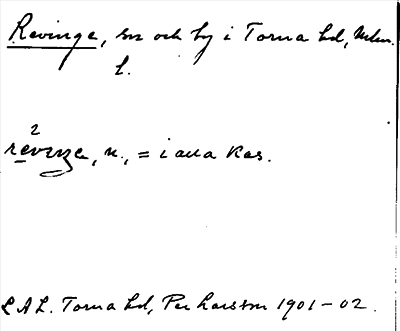 Revinge, sn och by i Torna hd, Mlm.
l.
2
revinge, n., = i alla kas.
LAL. Torna hd, Per Larsson 1901-02.